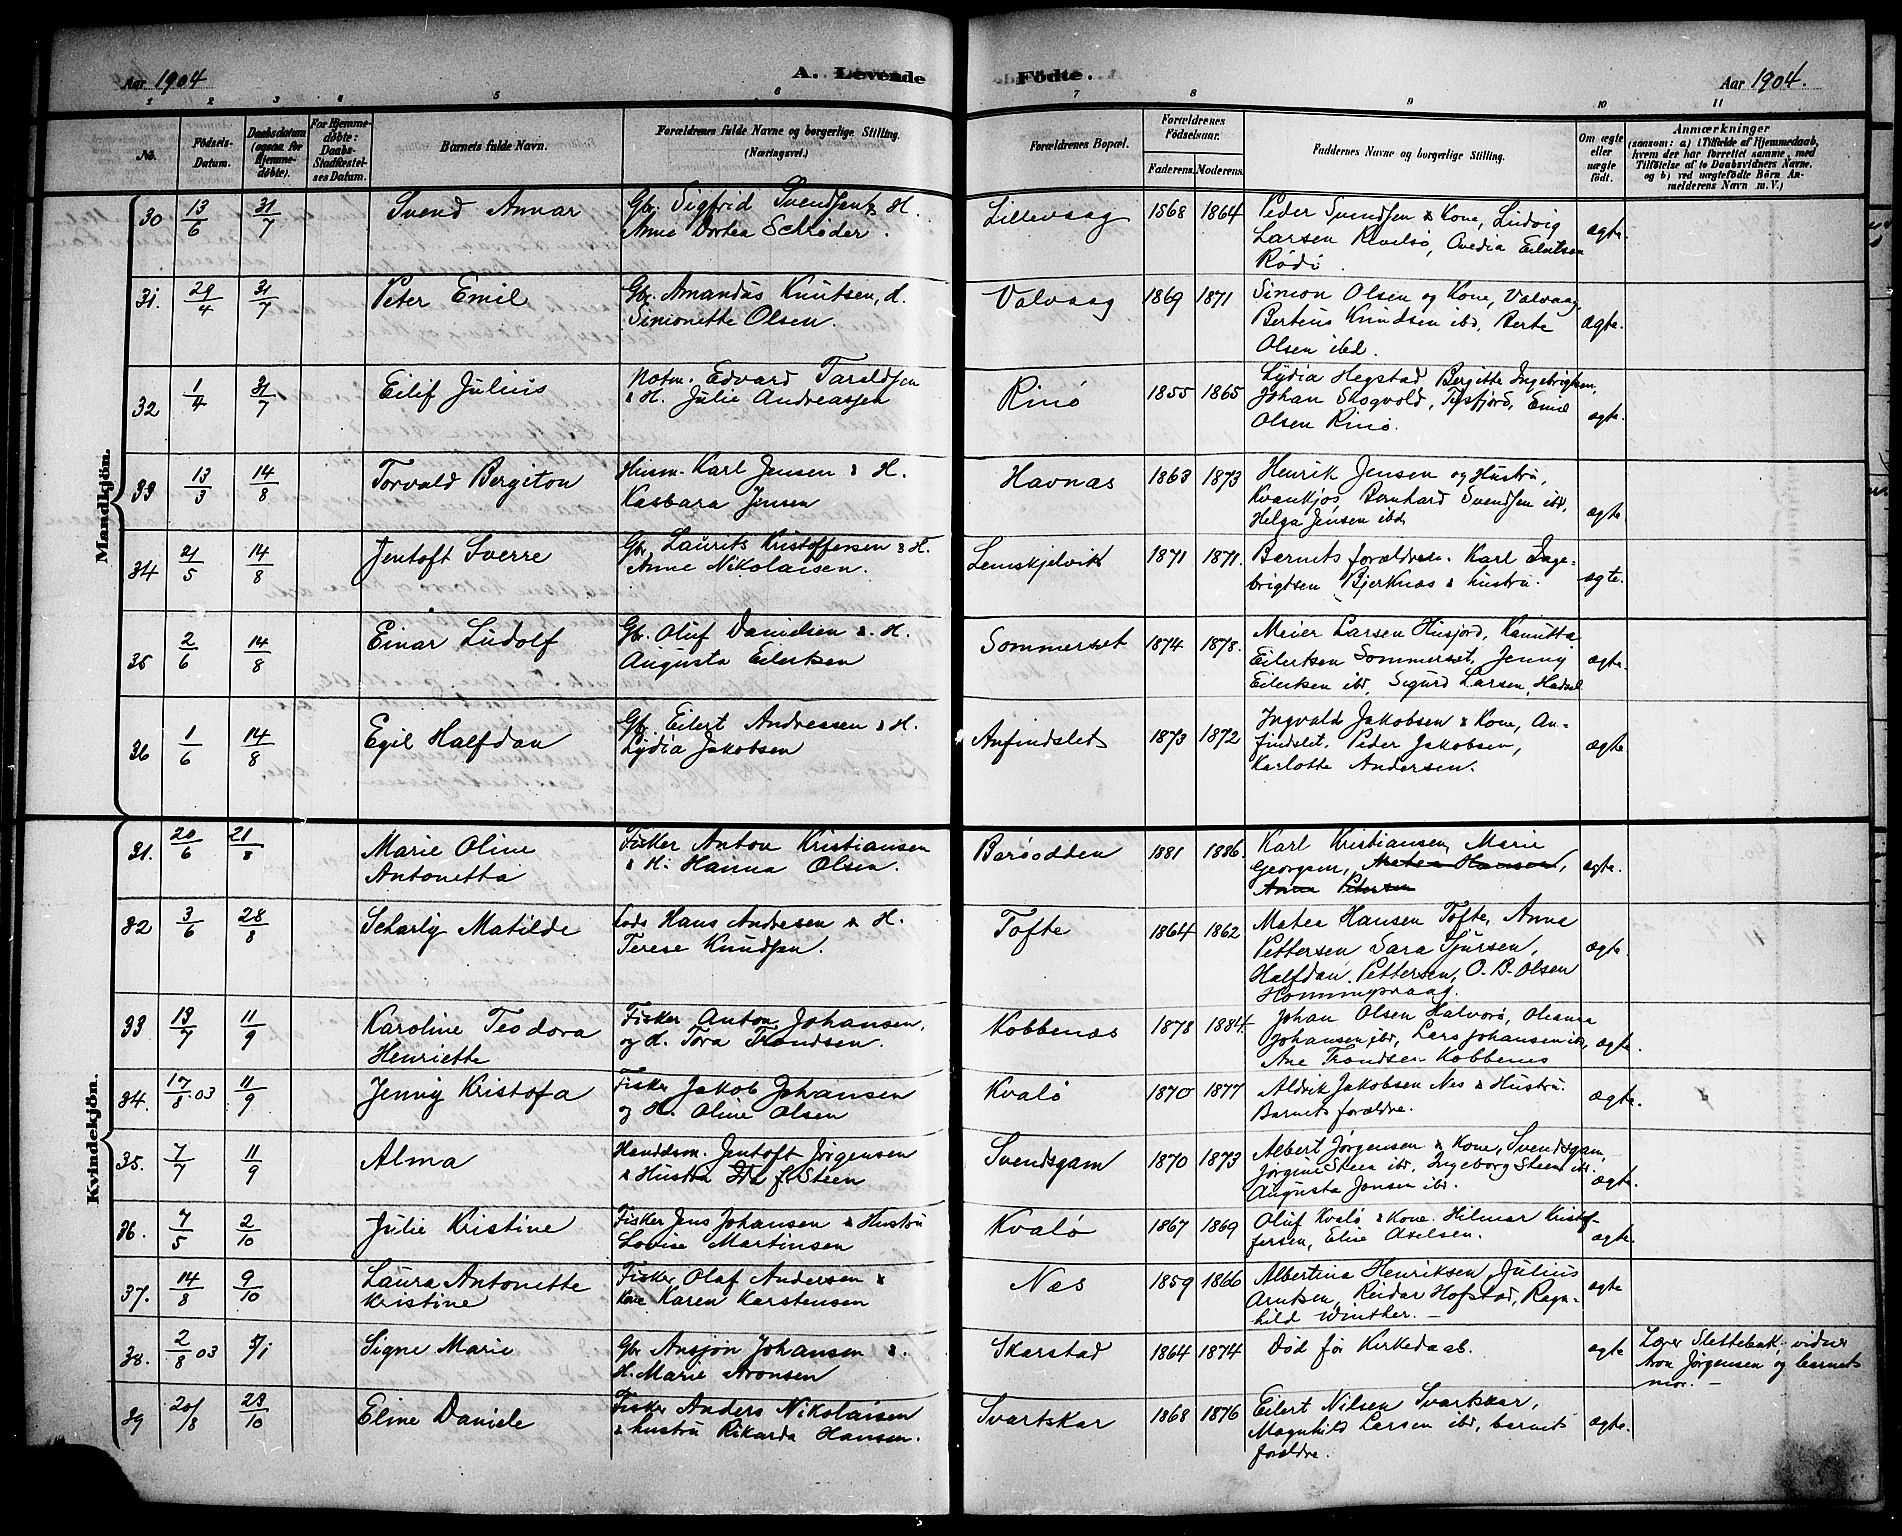 Aar 1904 A. Levende Födte. Aar 1904.
1 2 3 4 5 6 7 8 9 10 11
No. Födsels-Datum. Daabsdatum (ogsaa for Hjemme-døbte). For Hjemme-døbte: Daabs-Stadfæstel-ses Datum. Barnets fulde Navn. Forældrenes fulde Navne og borgerlige Stilling. (Næringsvei.) Forældrenes Bopæl. Forældrenes Födselsaar. Faderens. Moderens. Faddernes Navne og borgerlige Stilling. Om ægte eller uægte født. Anmærkninger (saasom: a) i Tilfælde af Hjemmedaab, hvem der har forrettet samme, med Tilføielse af to Daabsvidners Navne. og b) ved uægtefødte Börn An-melderens Navn m. V.)
Mandkjön.
30 13/6 31/7 Svend Annar Gbr. Sigfrid Svendsen & H. Anna Dortea Schrøder. Lillevaag 1868 1864 Peder Svendsen & Kone, Ludvig
Larsen Kvelsø, Ovedia Eilertsen
Rødi. ægte.
31. 29/4 31/7 Peter Emil Gbr. Amandus Knutsen, H. Simonette Olsen. Valvaag 1869 1871 Simon Olsen og Kone, Valvaag
Berteus Knudsen ibd, Berte
Olsen ibd. ægte.
32 1/4 31/7 Eilif Julius Notm. Edvard Taraldsen & H. Julie Andreassen Rinø 1855 1865 Lydia Hegstad, Bergitte Ingebrigtsen,
Johan Skogvold, Tysfjord, Emil
Olsen Rinø. ægte.
33 13/3 14/8 Torvald Bergiton Husm. Karl Jensen & H. Kasbara Jensen Havnæs 1863 1873 Henrik Jensen og Hustru,
Kvankjøs Bernhard Svendsen ibd,
Helga Jensen ibd ægte.
34 21/5 14/8 Jentoft Sverre Gbr. Laurits Kristoffersen & H. Anne Nikolaisen. Lemskjelvik 1871 1871. Barnets forældre. Karl Inge-
brigtsen Bjerknæs & hustru. ægte.
35 2/6 14/8 Einar Ludolf Gbr. Oluf Danielsen & H. Augusta Eilertsen Sommerset 1874 1878. Meier Larsen Husjord, Kanutta
Eilertsen Sommerset, Jenny
Eilertsen ibd, Sigurd Larsen, Hadsel ægte.
36 1/6 14/8 Egil Halfdan Gbr. Eilert Andressen & H. Lydia Jakobsen Anfindslet 1873 1872 Ingvald Jakobsen & Kone, An-
findslet. Peder Jakobsen,
Karlotte Andersen. ægte
Kvindekjön.
31. 20/6 21/8 Marie Oline Antonetta Fisker Anton Kristiansen & H. Hanna Olsen. Barøodden 1881 1886. Karl Kristiansen, Marie
Georgsen, Matea Hansen,
Anna Petersen ægte.
32 3/6 28/8 Scharly Matilde Lods Hans Andresen & H. Terese Knudsen. Tofte 1864 1862 Matea Hansen Tofte, Anna
Pettersen, Sara Sjursen,
Halfdan Pettersen, O. B. Olsen
Honningsvaag. ægte.
33 13/7 11/9 Karoline Teodora Henriette Fisker Anton Johansen, og H. Tora Trondsen. Kobbenæs 1878 1884. Johan Olsen Halvorø, Oleanna
Johansen ibd, Lars Johansen ibd,
Ane Trondsen Kobbenæs ægte.
34. 17/8.03 11/9 Jenny Kristofa Fisker Jakob Johansen og H. Oline Olsen Kvalø 1870 1877 Aldrik Jakobsen Næs & Hustru.
Barnets forældre. ægte.
35. 7/7 11/9 Alma Handelsm. Jentoft Jørgensen & Hustru Ida f. Steen Svendsgam 1870 1873 Albert Jørgensen & Kone, Svendsgam,
Jørgine Steen ibd, Ingeborg Steen ibd.
Augusta Jensen ibd. ægte.
36. 7/5 2/10 Julie Kristine Fisker Jens Johansen & Hustru Lovise Martinsen Kvalø 1867 1869 Oluf Kvalø & Kone. Hilmar Kristof-
fersen, Elise Axelsen. ægte.
37. 14/8 9/10 Laura Antonette Kristine Fisker Olaf Andersen & Kone Karen Karstensen Næs 1859 1866 Albertina Henriksen, Julius
Arntsen, Reidar Hofstad, Ragn-
hild Winther. ægte
38. 2/8 03 5/1 Signe Marie Gbr Ansjøn Johansen & H. Marie Aronsen Skarstad 1864 1874 Død før Kirkedaab. ægte Lærer Slettebak, vidner
Aron Jørgensen og barnets
mor.
39 20/8 23/10 Eline Daniele Fisker Anders Nikolaisen & hustru Rikarda Hansen. Svartskar 1868 1876 Eilert Nilsen Svartskar,
Magnhild Larsen ibd, barnets
forældre. ægte.